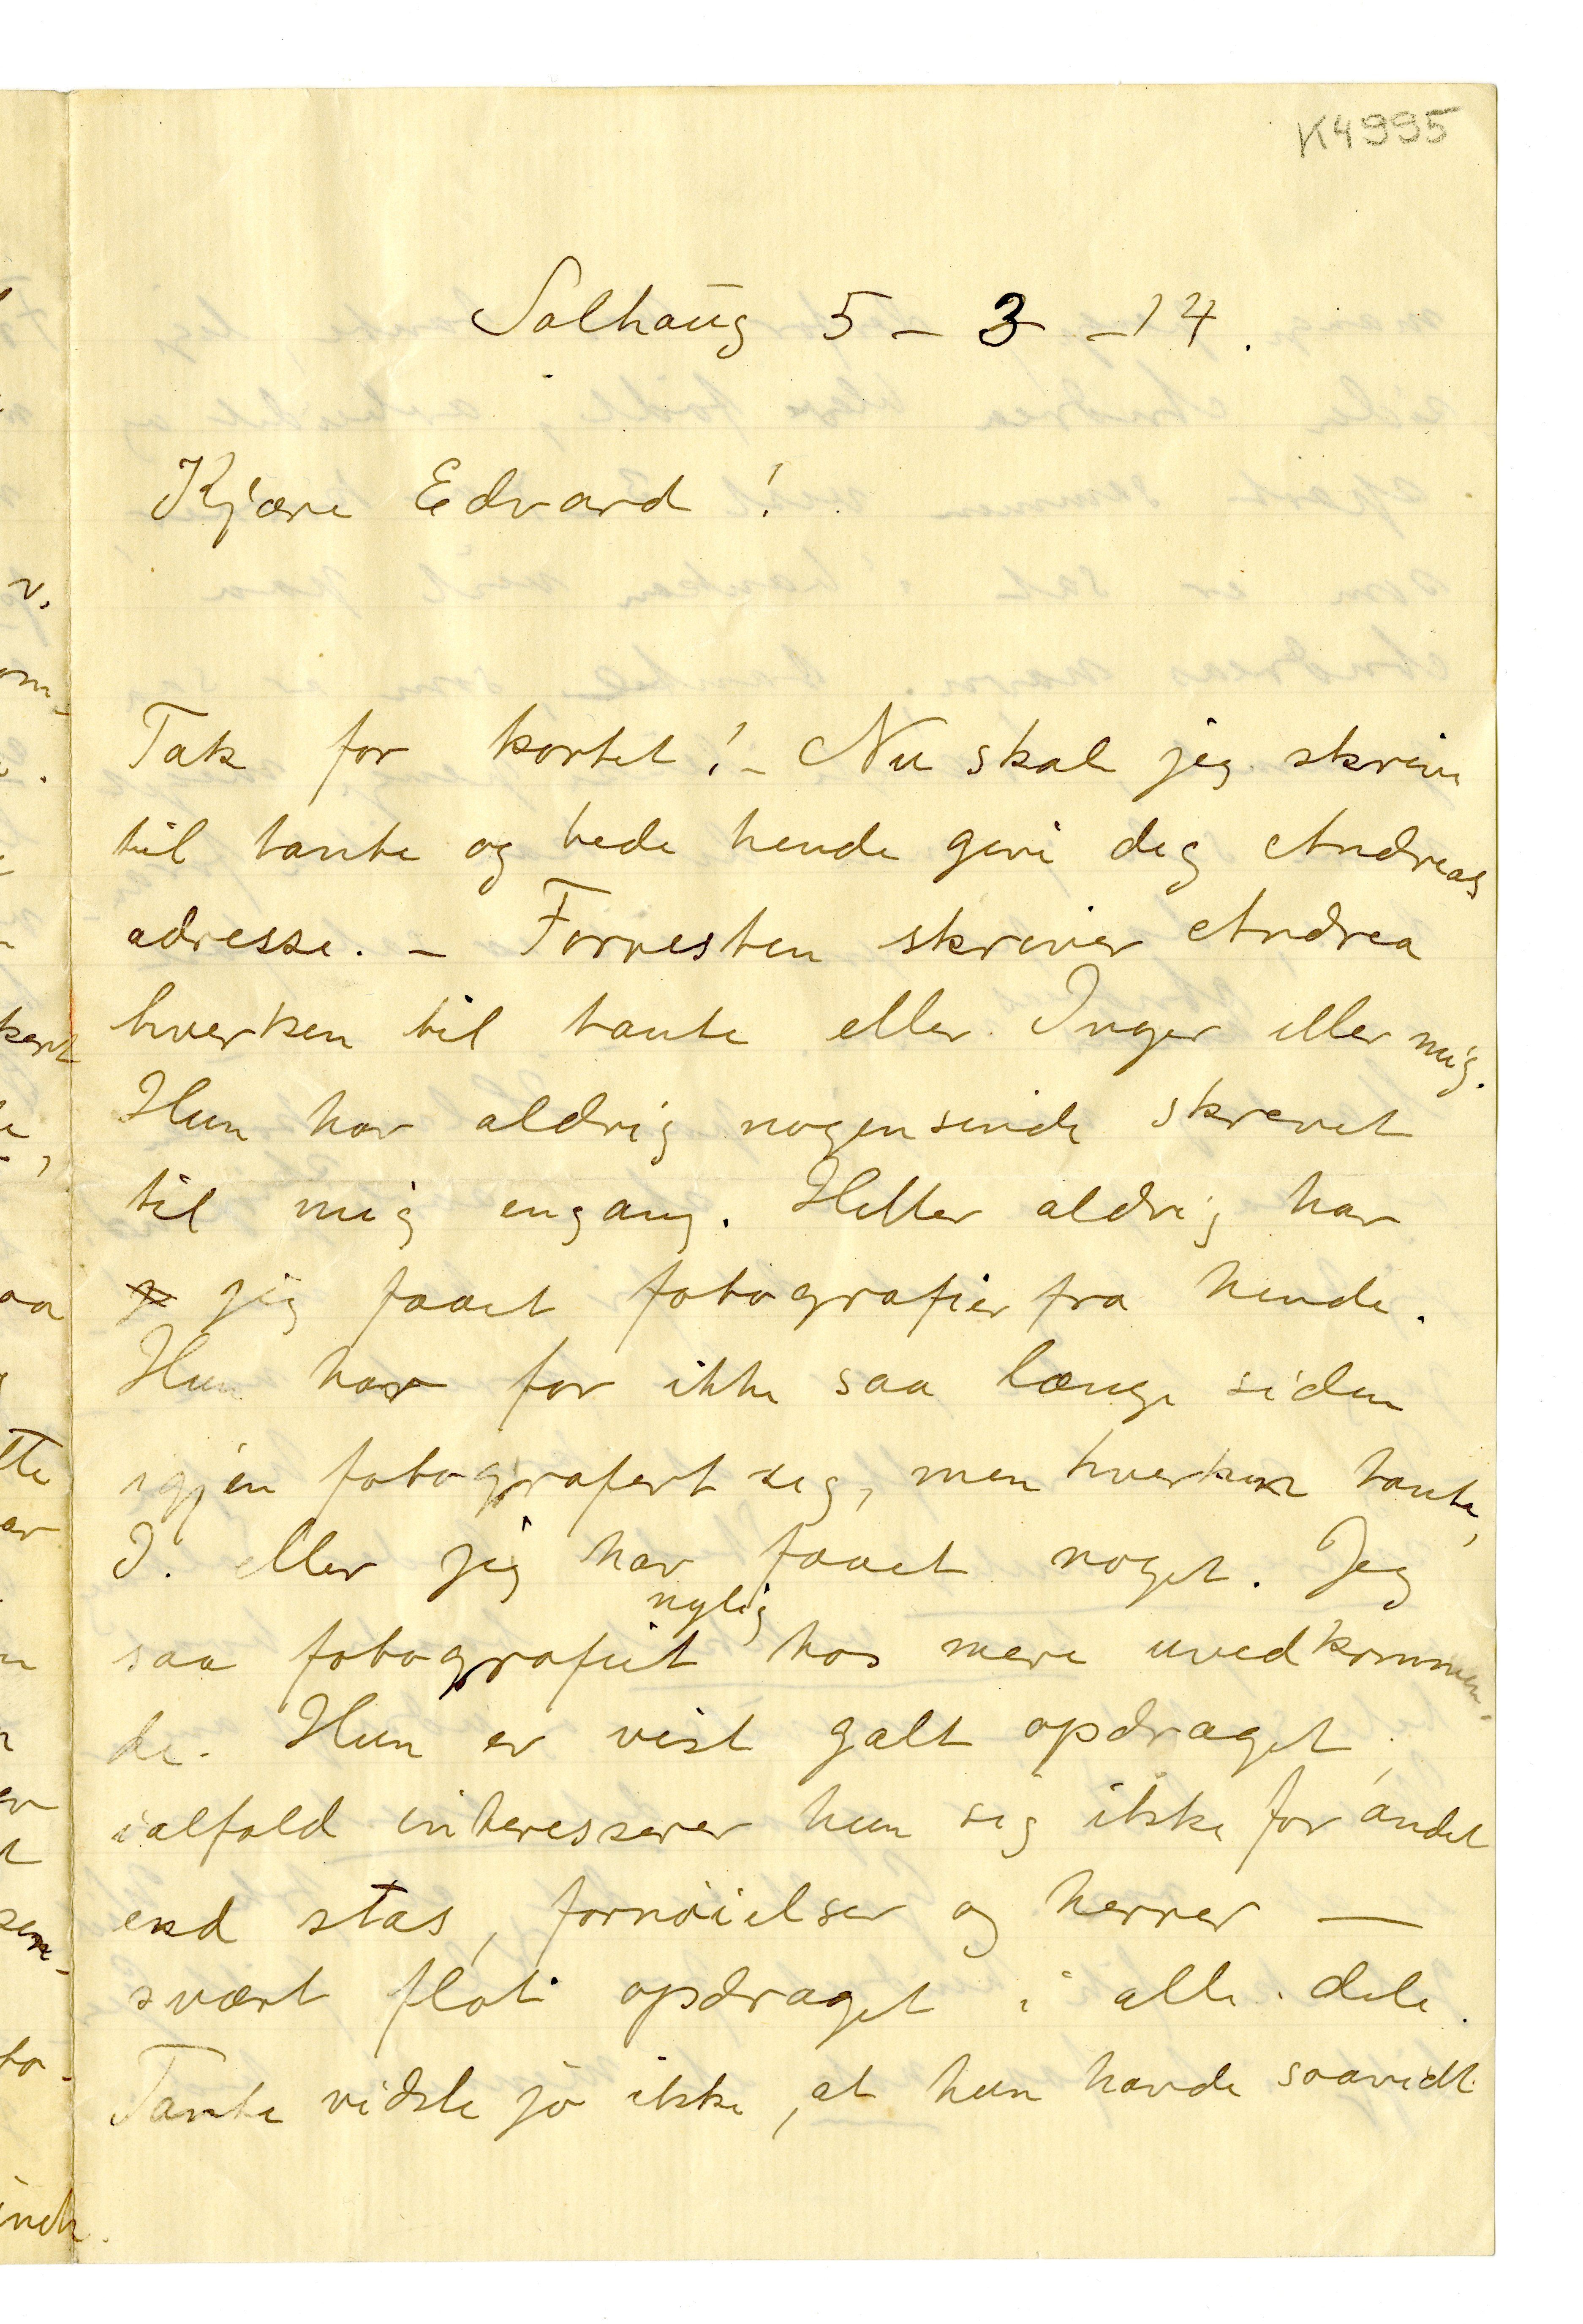 K4995
Solhaug 5 – 3 – 14.
Kjære Edvard!
Tak for kortet! – Nu skal jeg skrive
til tante og bede hende give dig Andreas
adresse. – Forresten skriver Andrea
hverken til tante eller Inger eller mig.
Hun har aldrig nogensinde skrevet
til mig engang. Heller aldrig har
jeg faaet fotografier fra hende.
Hun har for ikke saa længe siden
igjen fotografert sig, men hverken tante,
I. eller jeg har faaet noget. Jeg
nylig
saa fotografiet hos mere uvedkommen-
de. Hun er vist galt opdraget,
ialfald interesserer hun sig ikke for andet
end stas, fornøielser og herrer —
svært flot opdraget i alle dele.
Tante vidste jo ikke, at hun havde saavidt